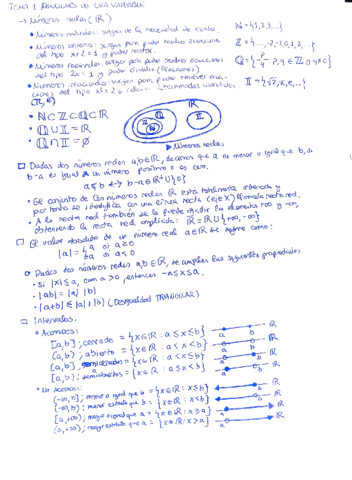 TEMA 1 FUNCIONES DE UNA VARIABLE
→ Números reales (ℝ)
• Números naturales: surgen de la necesidad de contar. ℕ={1,2,3,...}
• Números enteros: surgen para poder resolver ecuaciones
del tipo x+2=1 y poder restar. ℤ={...,-2,-1,0,1,2,...}
• Números racionales: surgen para poder resolver ecuaciones
del tipo 2x=1 y poder dividir (fracciones) ℚ={p/q : p,q∈ℤ q≠0}
• Números irracionales: surgen para poder resolver
del tipo x²=2 o
(π, e) 𝕀={√2,π,e,...}
• ℕ⊂ℤ⊂ℚ⊂ℝ
• ℚ∪𝕀=ℝ
• ℚ∩𝕀=∅
ℚ ℤ ℕ 𝕀
ℝ
Números reales
□ Dados dos números reales a,b∈ℝ, decimos que a es menor o igual que b, si
b-a es igual a un número positivo o es cero.
a≤b ↔ b-a∈ℝ⁺∪{0}
• El conjunto de los números reales ℝ está totalmente ordenado y
por tanto se identifica con una línea recta (eje X) llamada recta real.
• A la recta real también se le puede añadir los elementos +∞ y -∞,
obteniendo la recta real ampliada: ℝ=ℝ∪{+∞,-∞}
□ El valor absoluto de un número real a∈ℝ se define como:
|a|={a si a≥0
-a si a<0
◇ Dados dos números reales a,b∈ℝ, se cumplen las siguientes propiedades
• Si |x|≤a, con a>0, entonces -a≤x≤a.
• |ab|=|a||b|
• |a+b|≤|a|+|b| (Desigualdad TRIANGULAR)
□ Intervalos.
* Acotados:
[a,b]; cerrado = {x∈ℝ : a≤x≤b} a b ℝ
(a,b); abierto = {x∈ℝ : a<x<b} a b ℝ
(a,b]; semiabierto = {x∈ℝ : a<x≤b} a b ℝ
[a,b); semiabierto = {x∈ℝ : a≤x<b} a b ℝ
* No acotados:
(-∞,b]; menor o igual que b = {x∈ℝ : x≤b} b ℝ
(-∞,b); menor estricto que b = {x∈ℝ : x<b} b ℝ
[a,+∞); mayor o igual que a = {x∈ℝ : x≥a} a ℝ
(a,+∞); mayor estricto que a = {x∈ℝ : x>a} a ℝ